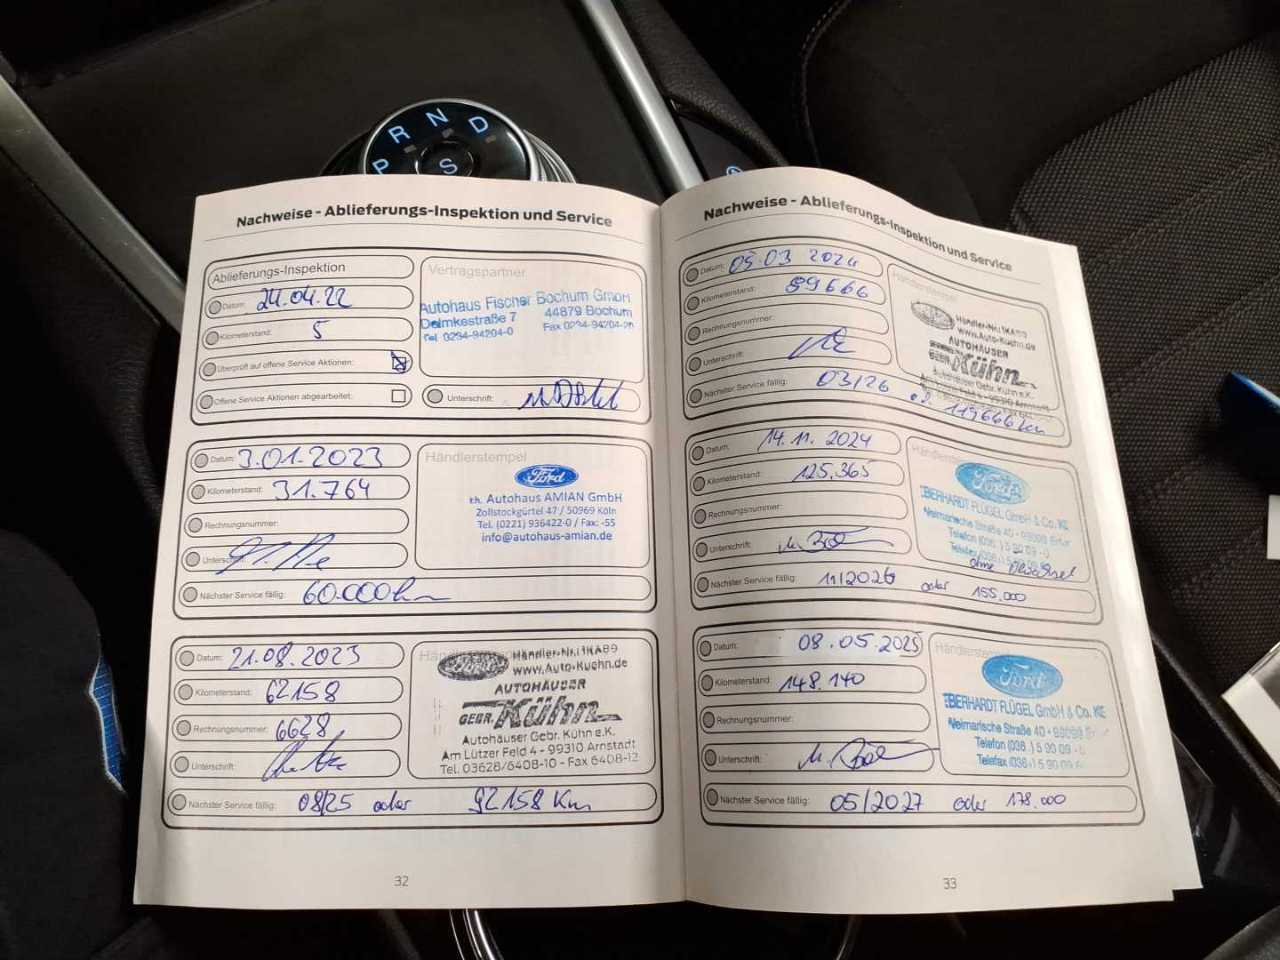 P R N D
S
Nachweise - Ablieferungs-Inspektion und Service
Ablieferungs-Inspektion
Datum: 24.04.22
Kilometerstand: 5
Überprüft auf offene Service Aktionen:
Offene Service Aktionen abgearbeitet:
Vertragspartner
Autohaus Fischer Bochum GmbH
Delmkestraße 7 44879 Bochum
Tel 0234-94204-0 Fax 0234-94204-20
Unterschrift:
Datum: 3.01.2023
Kilometerstand: 31.764
Rechnungsnummer:
Unterschrift:
Nächster Service fällig: 60.000km
Händlerstempel
Ford
th. Autohaus AMIAN GmbH
Zollstockgürtel 47 / 50969 Köln
Tel. (0221) 936422-0 / Fax: -55
info@autohaus-amian.de
Datum: 21.08.2023
Kilometerstand: 62158
Rechnungsnummer: 6628
Unterschrift:
Nächster Service fällig: 08/25 oder 92158 Km
Händler-Nr.:1KA89
www.Auto-Kuehn.de
AUTOHÄUSER
GEBR. Kühn
Autohäuser Gebr. Kühn e.K.
Am Lützer Feld 4 - 99310 Arnstadt
Tel. 03628/6408-10 - Fax 6408-12
32
Nachweise - Ablieferungs-Inspektion und Service
Datum: 05.03 2024
Kilometerstand: 89666
Rechnungsnummer:
Unterschrift:
Nächster Service fällig: 03/26 od. 119666 km
Händlerstempel
Händler-Nr.:1KA89
www.Auto-Kuehn.de
AUTOHÄUSER
GEBR. Kühn
Autohäuser Gebr. Kühn e.K.
99310 Arnstadt
Datum: 14.11.2024
Kilometerstand: 125.365
Rechnungsnummer:
Unterschrift:
Nächster Service fällig: 11/2026 oder 155.000
Ford
EBERHARDT FLÜGEL GmbH & Co. KG
Weimarische Straße 40 - 99099 Erfur
Telefon (036 ) 5 90 09 - 0
ohne Ölwechsel
Datum: 08.05.2025
Kilometerstand: 148.140
Rechnungsnummer:
Unterschrift:
Nächster Service fällig: 05/2027 oder 178.000
Ford
EBERHARDT FLÜGEL GmbH & Co. KG
Weimarische Straße 40 - 99099 Er
Telefon (036 ) 5 90 09 - 0
Telefax (036 ) 5 90 09
33